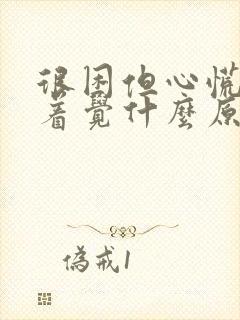 很困但心慌
着覺什麼原
偽戒1